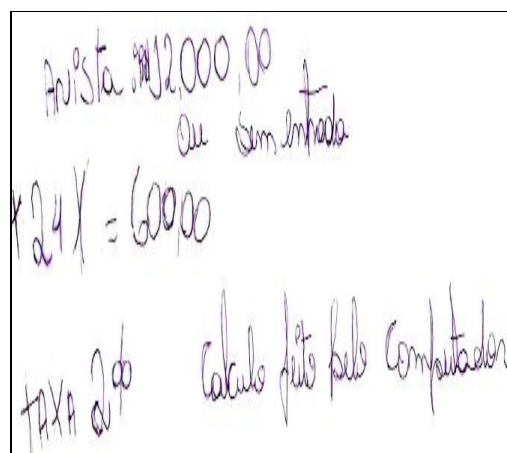 Avista 12.000,00
ou sem entrada
+ 24 X = 600,00
TAXA 2%
Calculo feito pelo Computador